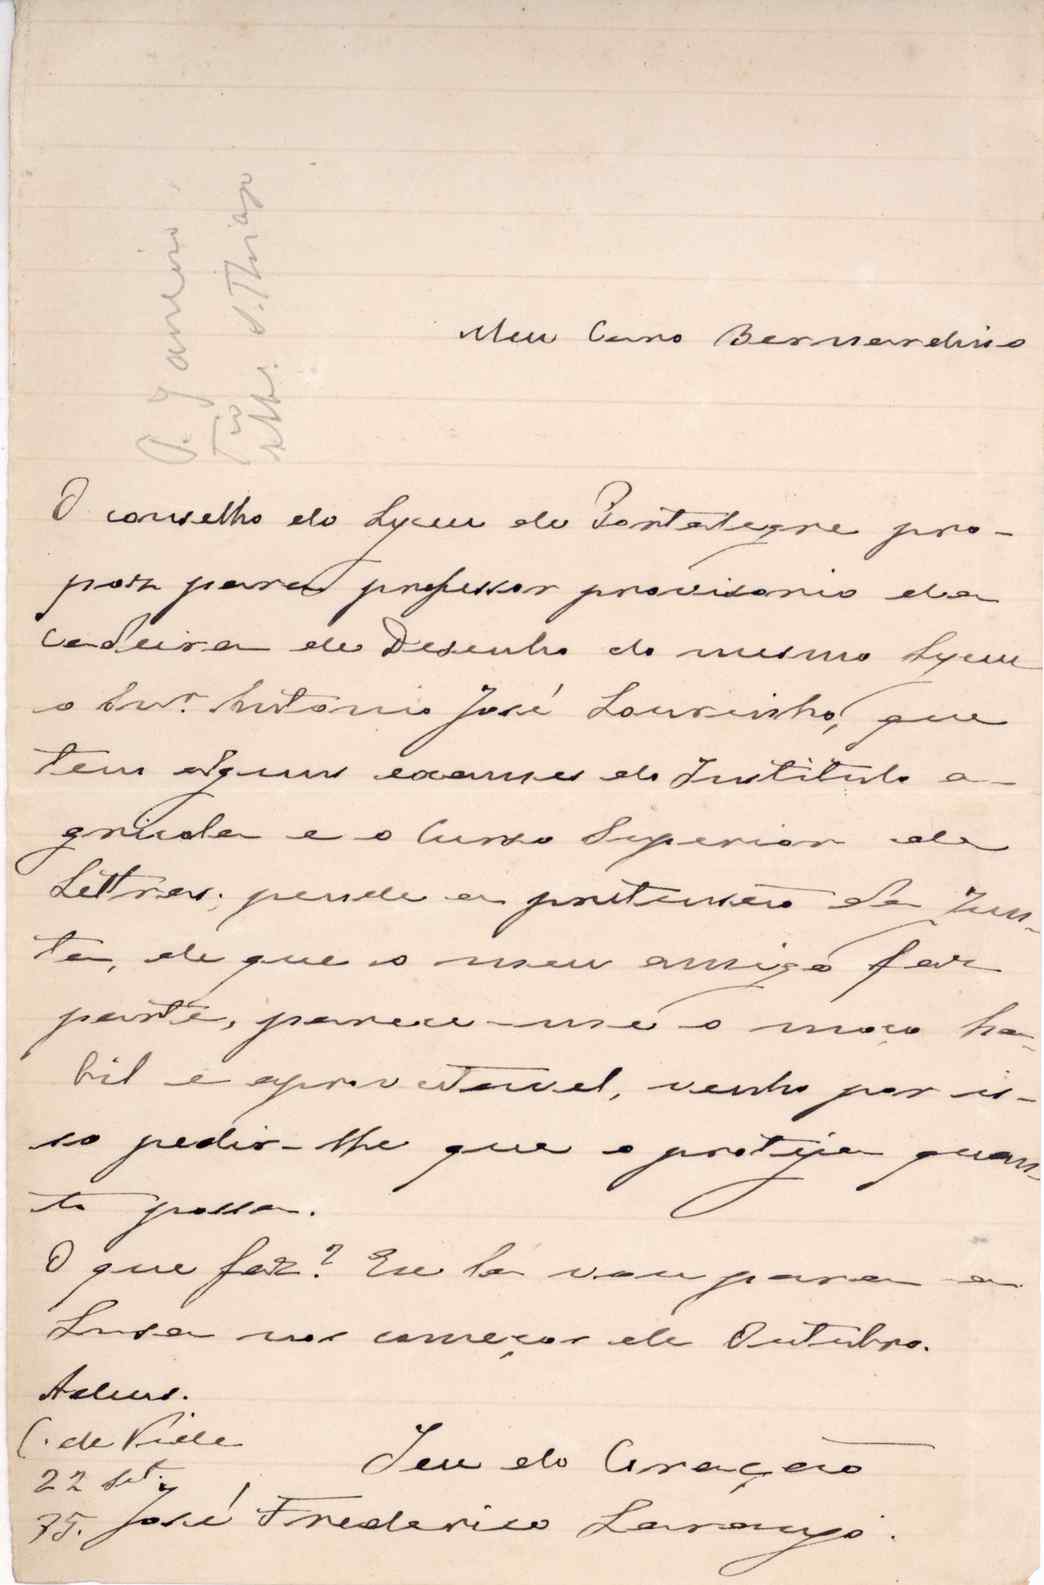 P. Janeiro
Tio
S. Thiago
Meu Caro Bernardino
O conselho do Lyceu de Portalegre pro-
poz para professor provisorio da
cadeira de Desenho do mesmo Lyceu
o Snr. Antonio José Lourinho, que
tem alguns exames do Instituto a-
gricola e o Curso Superior de
Lettras; pende a pretensão da Jun-
ta, de que o meu amigo faz
parte, parece-me o moço ha-
bil e aproveitavel, venho por is-
so pedir-lhe que o proteja quan-
to possa.
O que faz? Eu lá vou para a
Lusa nos começos de Outubro.
Adeus.
C. de Vide
22 Set.
75.
Seu do Coração
José Frederico Laranjo.